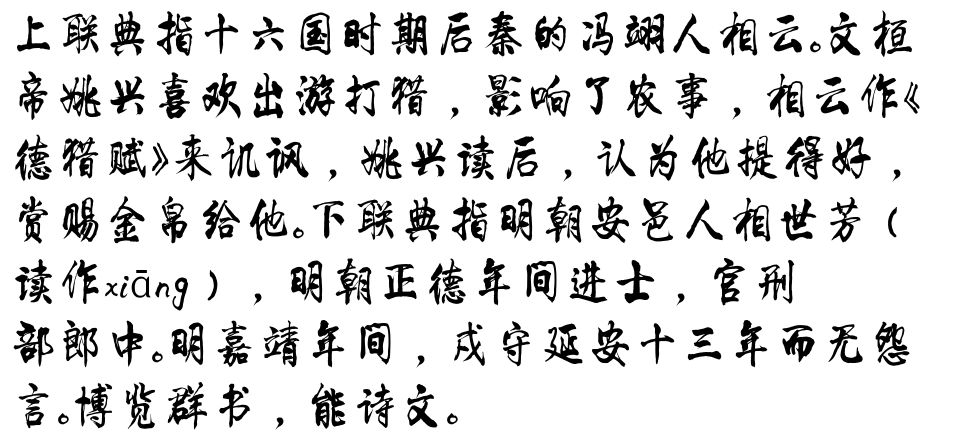 上联典指十六国时期后秦的冯翊人相云。文桓
帝姚兴喜欢出游打猎，影响了农事，相云作《
德猎赋》来讥讽，姚兴读后，认为他提得好，
赏赐金帛给他。下联典指明朝安邑人相世芳（
读作xiāng），明朝正德年间进士，官刑
部郎中。明嘉靖年间，戍守延安十三年而无怨
言。博览群书，能诗文。